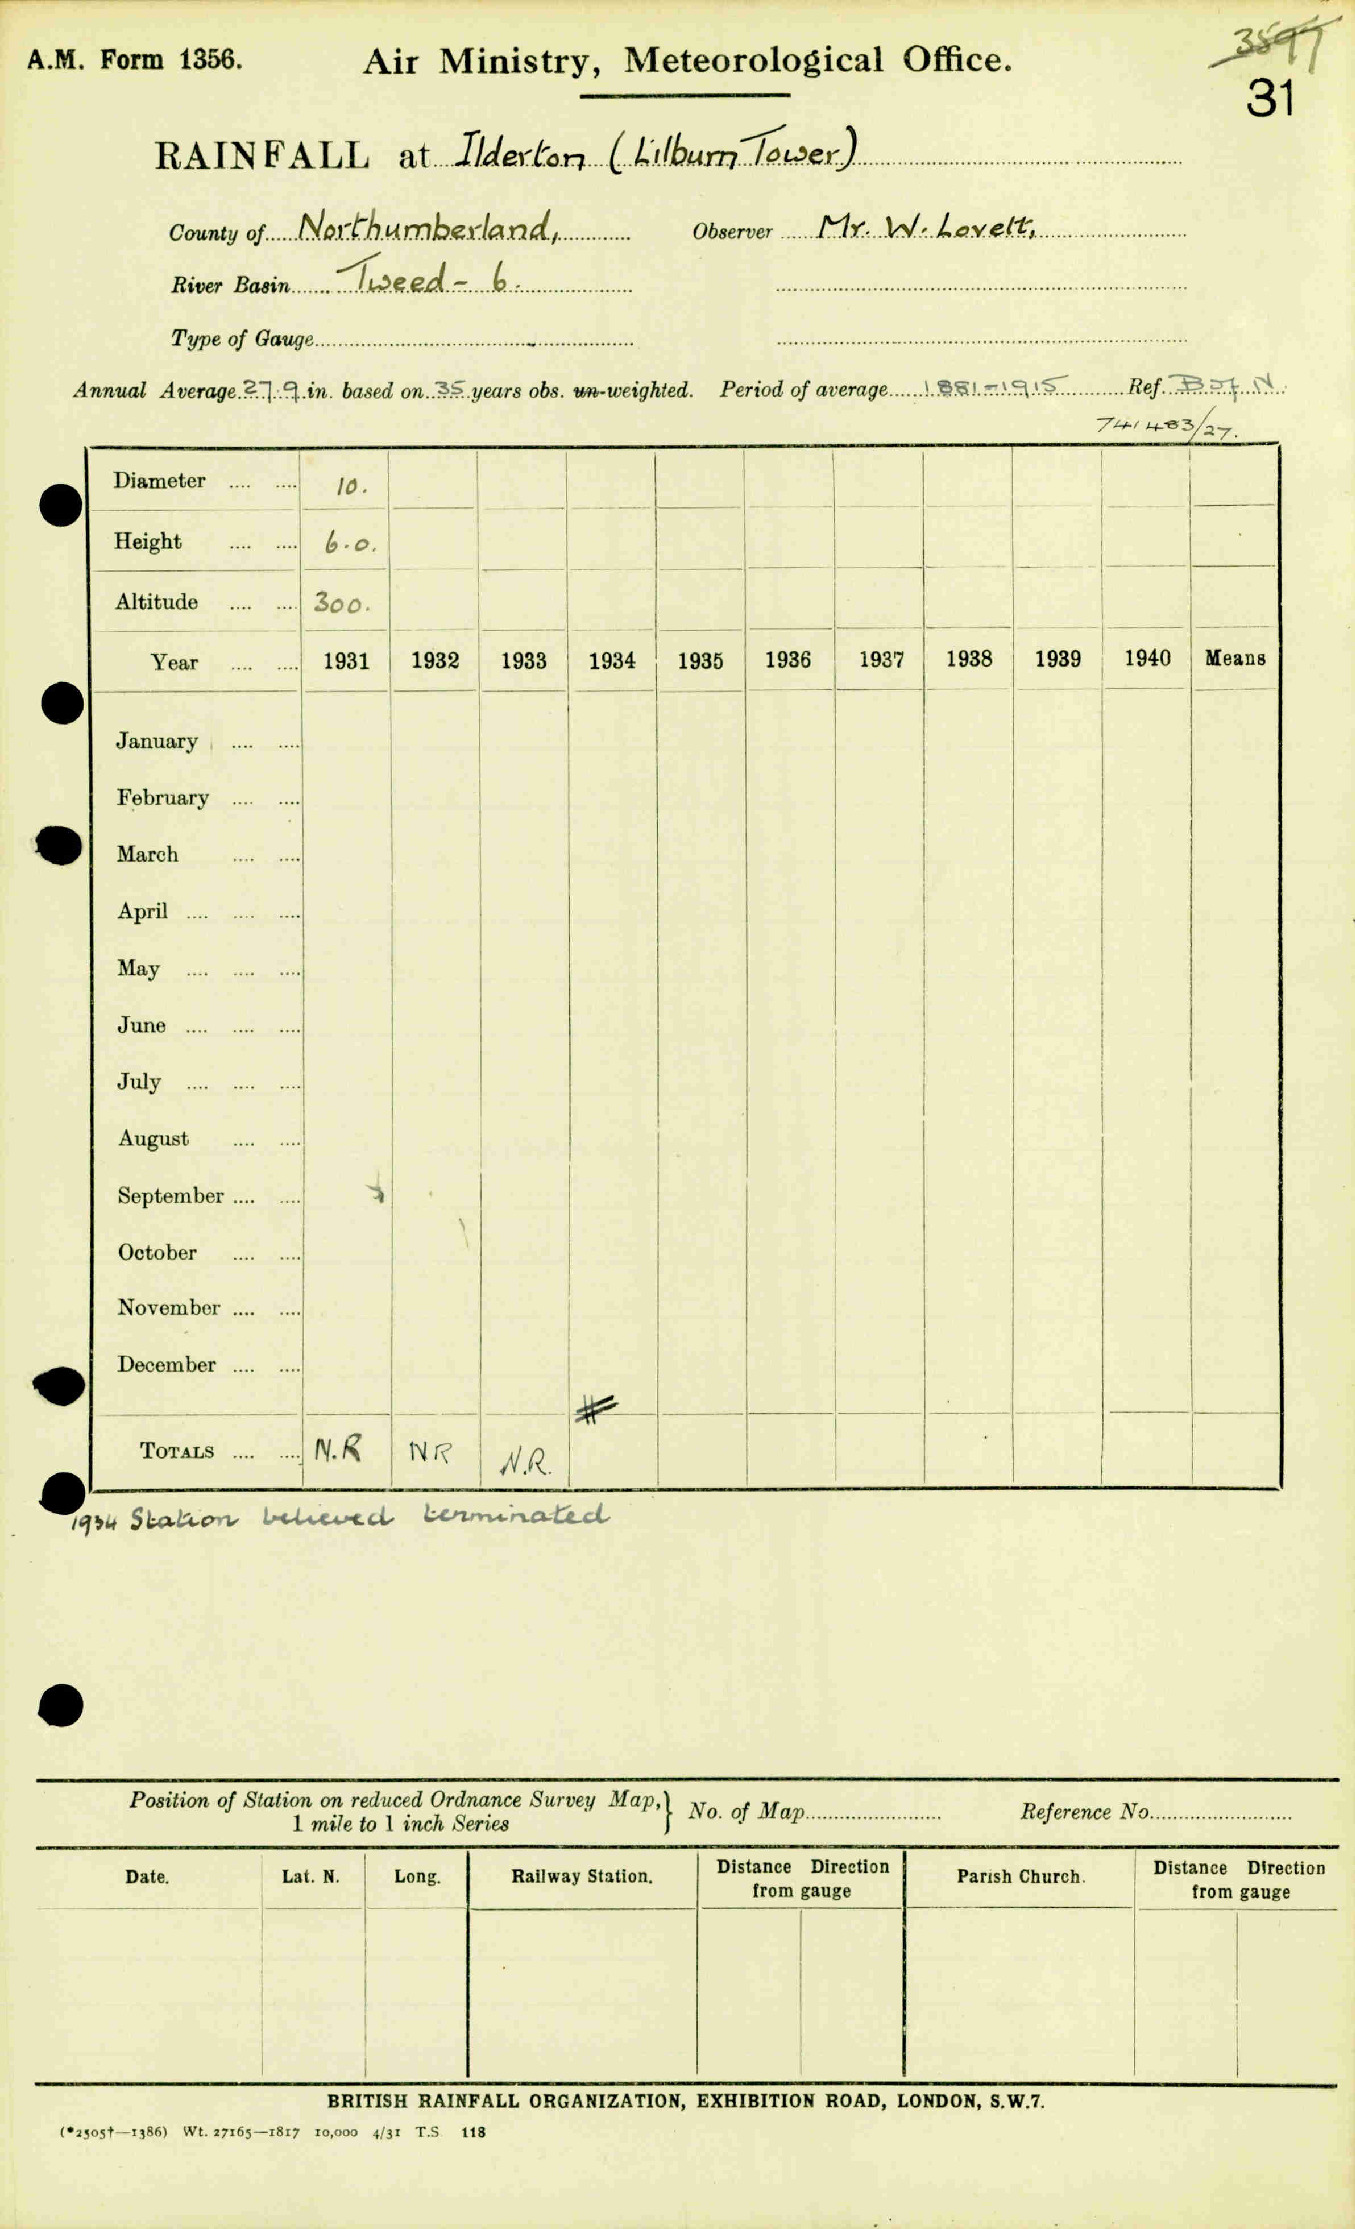 A.M. Form 1356.
Air Ministry, Meteorological Office.
3597
31
RAINFALL at Ilderton (Lilburn Tower)
County of Northumberland, Observer Mr. W. Lovett,
River Basin Tweed - 6.
Type of Gauge
Annual Average 27.9 in. based on 35 years obs. un-weighted. Period of average 1881-1915 Ref. N.
741483/27.
Diameter .... .... 10.
Height .... .... 6.0.
Altitude .... .... 300.
Year .... .... 1931 1932 1933 1934 1935 1936 1937 1938 1939 1940 Means
January .... ....
February .... ....
March .... ....
April .... .... ....
May .... .... ....
June .... .... ....
July .... .... ....
August .... ....
September .... ....
October .... ....
November .... ....
December .... ....
#
TOTALS .... .... N.R NR N.R.
1934 Station believed terminated
Position of Station on reduced Ordnance Survey Map,} No. of Map Reference No.
1 mile to 1 inch Series
Date. Lat. N. Long. Railway Station. Distance Direction from gauge Parish Church. Distance Direction from gauge
BRITISH RAINFALL ORGANIZATION, EXHIBITION ROAD, LONDON, S.W.7.
(*2505†—1386) Wt. 27165—1817 10,000 4/31 T.S 118